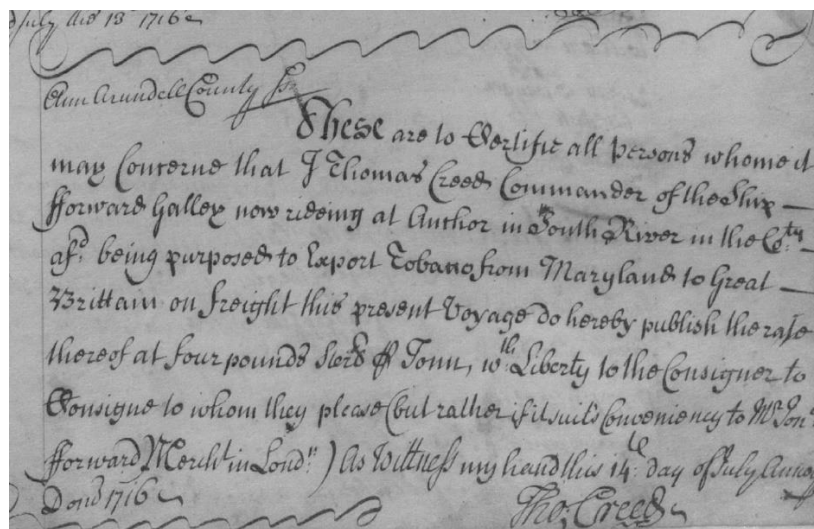 July Ano 13 1716
Ann Arundell County Ss
These are to Certifie all persons whome it
may Concerne that I Thomas Creed Commander of the Ship
fforward Galley now rideing at Anchor in South River in the Co:ty
afd. being purposed to Export Tobacco from Maryland to Great
Brittain on freight this present Voyage do hereby publish the rate
thereof at four pounds Sterl. Tonn, wth. Liberty to the Consigner to
Consigne to whom they please (but rather if it suits Conveniency to Mr. Jon.
fforward Mercht. in Londn.) As Wittness my hand this 14th. day of July Annoq
Domi 1716
Tho. Creed